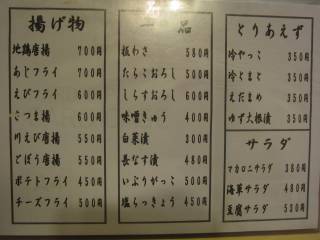 揚げ物
地鶏唐揚 700円
あじフライ 700円
えびフライ 600円
さつま揚 600円
川えび唐揚 550円
ごぼう唐揚 550円
ポテトフライ 450円
チーズフライ 500円
一品
板わさ 580円
たらこおろし 500円
しらすおろし 600円
味噌きゅう 400円
白菜漬 300円
長なす漬 480円
いぶりがっこ 500円
塩らっきょう 450円
とりあえず
冷やっこ 350円
冷とまと 350円
えだまめ 350円
ゆず大根漬 350円
サラダ
マカロニサラダ 380円
海草サラダ 480円
豆腐サラダ 530円